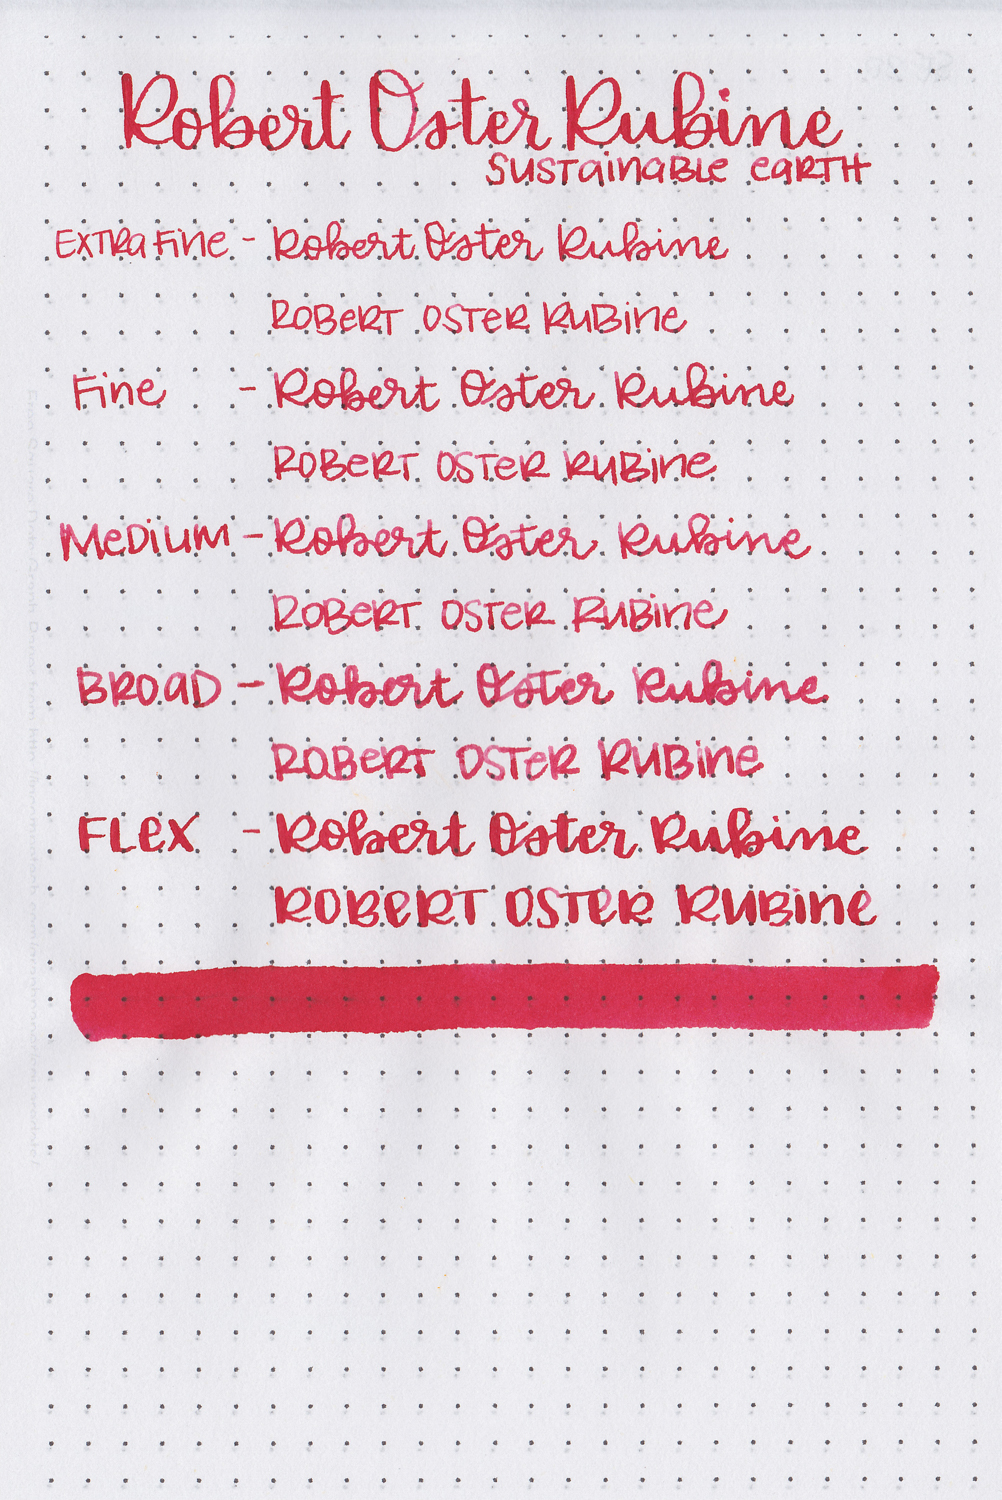 Robert Oster Rubine
SUSTainaBLe eaRTH
ExTRa Fine - Robert Oster Rubine
ROBeRT OSTeR RuBine
Fine - Robert Oster Rubine
ROBeRT OSTeR RuBine
MeDiuM - Robert Oster Rubine
ROBeRT OSTeR RuBine
BROaD - Robert Oster Rubine
ROBeRT OSTeR RuBine
FLex - Robert Oster Rubine
ROBeRT OSTeR RuBine